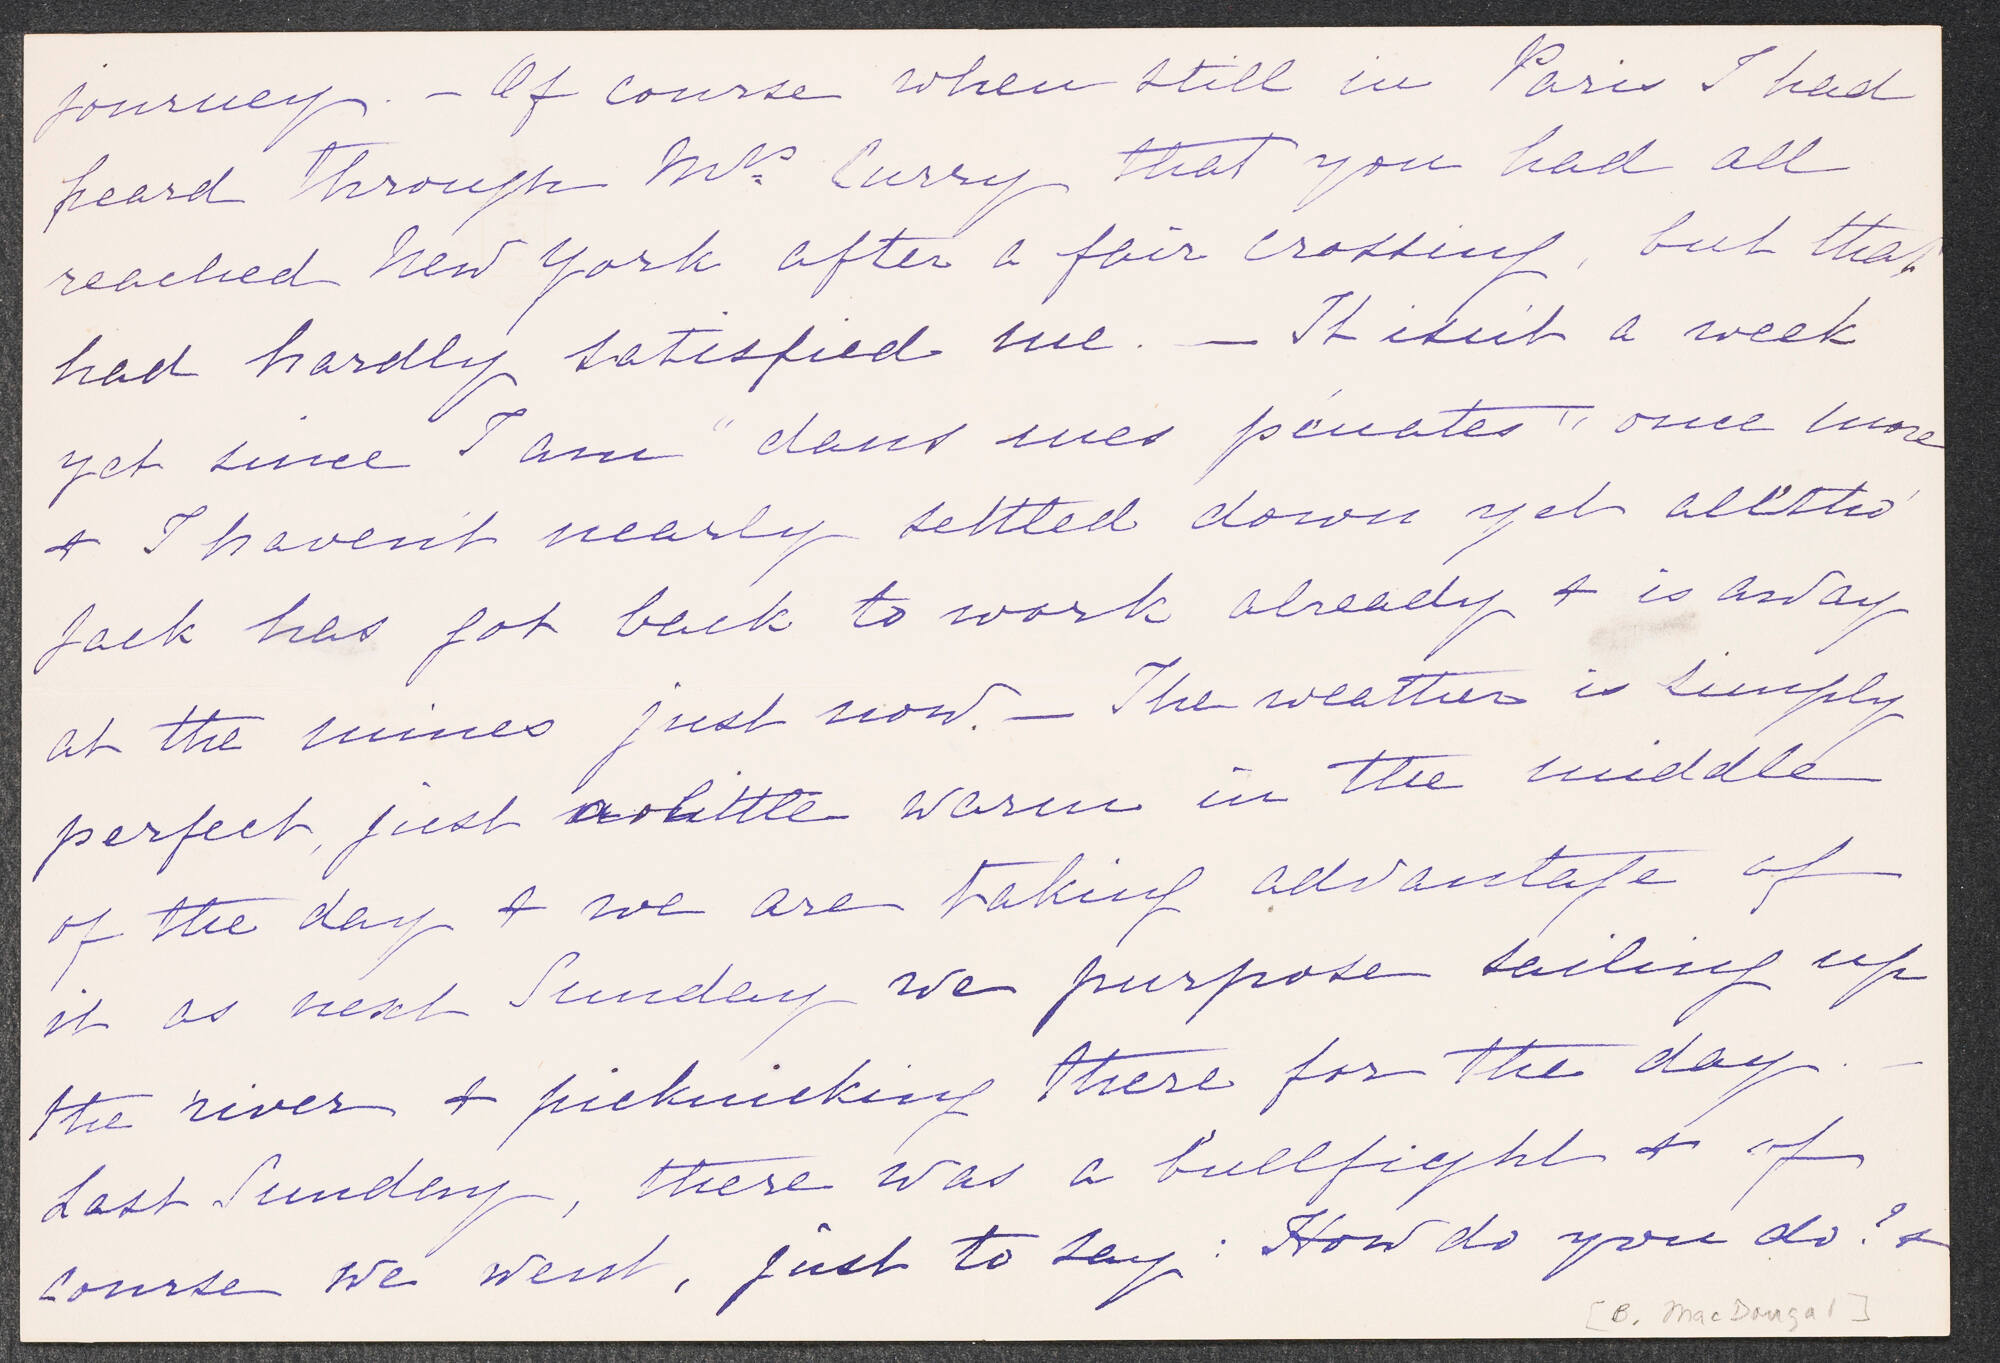 journey. - Of course when still in Paris I had
heard through Mrs. Curry that you had all
reached New York after a fair crossing, but that
had hardly satisfied me. - It isn't a week
yet since I am "dans mes pénates" once more
& I haven't nearly settled down yet all'tho'
Jack has got back to work already & is away
at the mines just now. - The weather is simply
perfect, just a little warm in the middle
of the day & we are taking advantage of
it as next Sunday we purpose sailing up
the river & picknicking there for the day. -
Last Sunday, there was a bullfight & of
course we went, just to say: How do you do? &
[B. MacDougal]